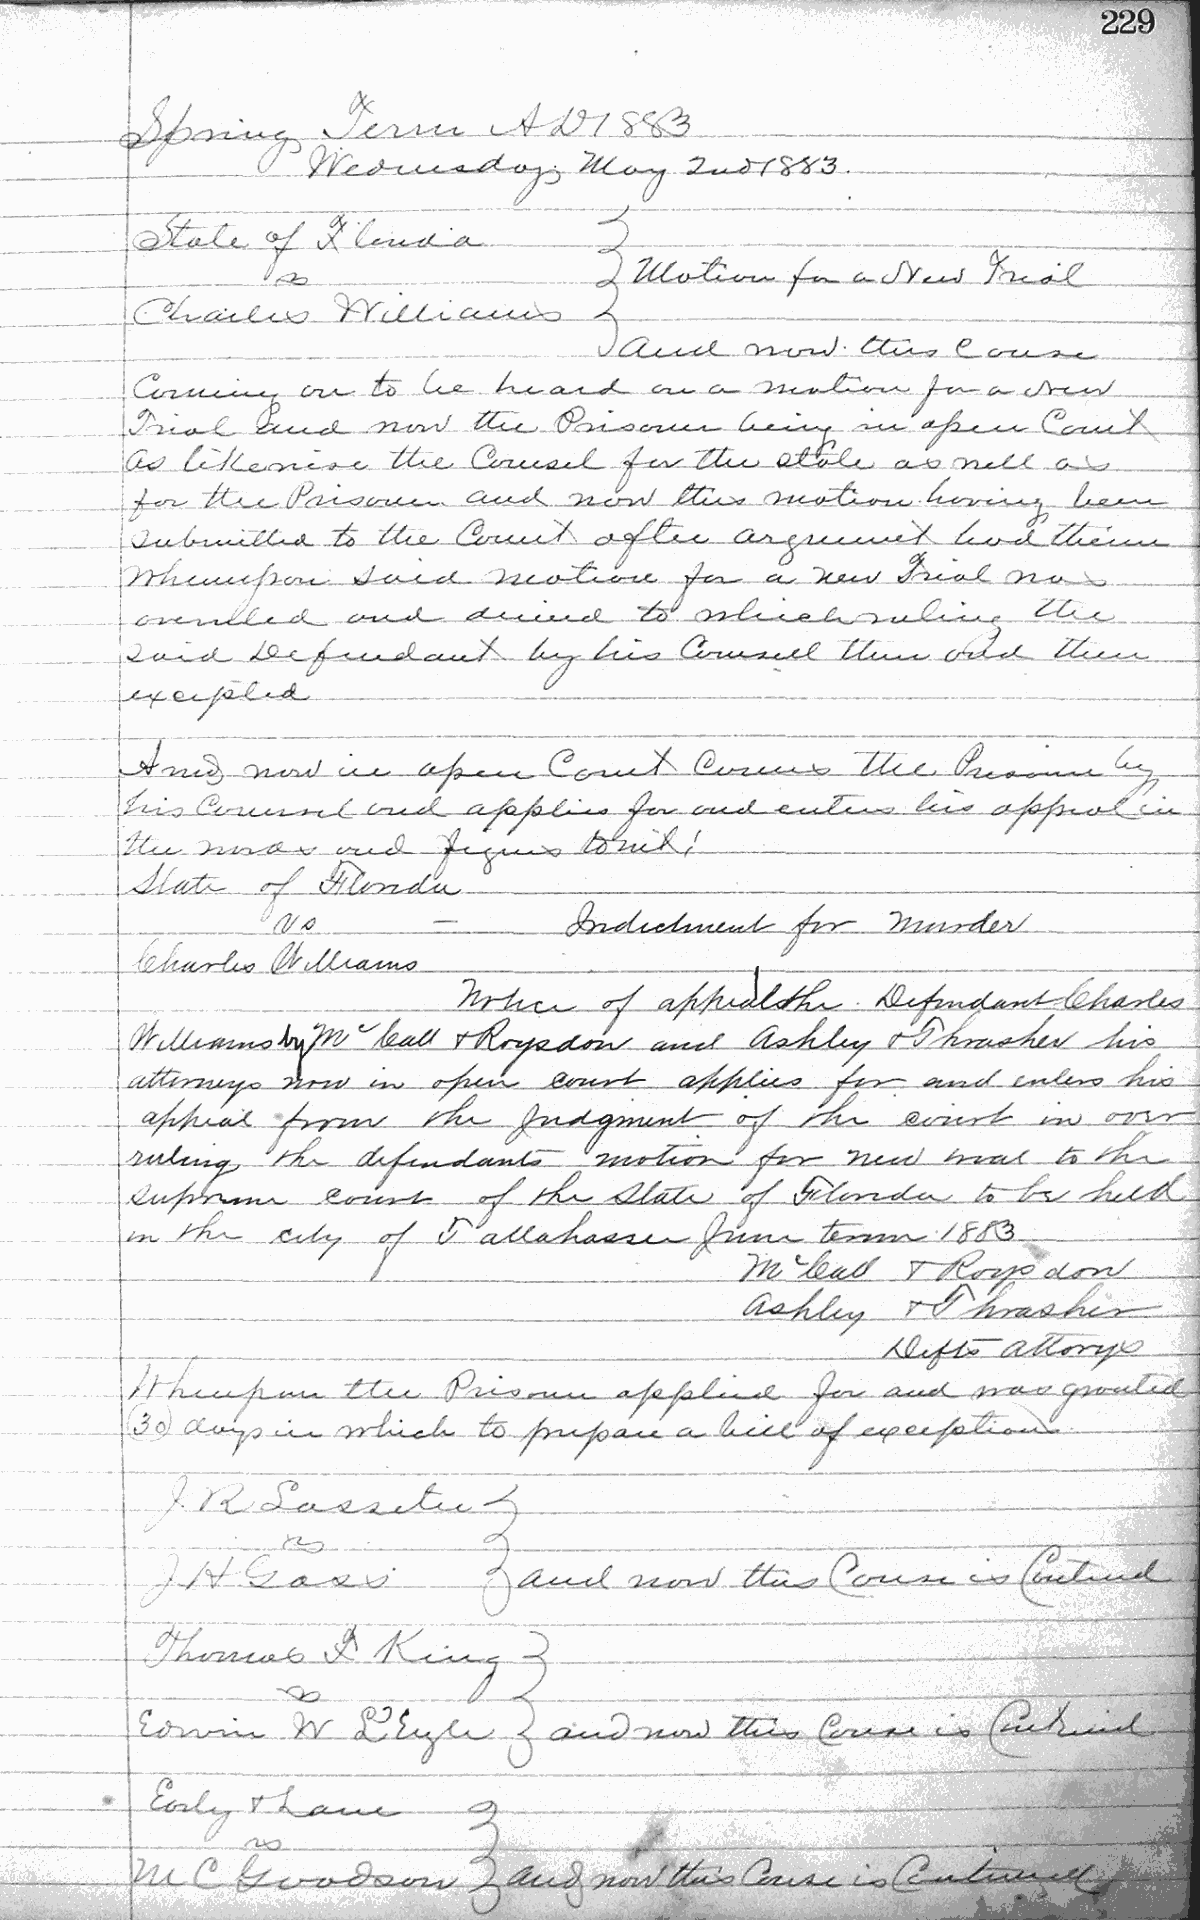 229
Spring Term AD 1883
Wednesday, May 2nd 1883.
State of Florida
vs
Motion for a New Trial
Charles Williams
and now this Cause
Coming on to be heard on a motion for a New
Trial and now the Prisoner being in open Court
as likewise the Counsel for the state as well as
for the Prisoner and now this motion having been
submitted to the Court after argument had
Whereupon said motion for a new Trial was
overruled and denied to which ruling the
said Defendant by his Counsell then and there
excepted
And now in open Court Comes the Prisoner by
his Counsel and applies for and enters his appeal in
the words and figures towit!
State of Florida
vs — Indictment for Murder
Charles Williams
Notice of appeal the Defendant Charles
Williams by McCall & Roysdon and Ashley & Thrasher his
attorneys now in open court applies for and enters his
appeal from the Judgment of the court in over
ruling the defendants motion for new trial to the
supreme court of the State of Florida to be held
in the city of Tallahassee June term 1883
McCall & Roysdon
Ashley & Thrasher
Defts attorys
Whereupon the Prisoner applied for and was granted
(30) days in which to prepare a bill of exception
J. R Lassiter
vs
J H Goss and now this Cause is Contined
Thomas F King
vs
Edwin W L'Engle and now this Cause is Contined
Early & Lane
vs
M C Goodson and now this Cause is Continued